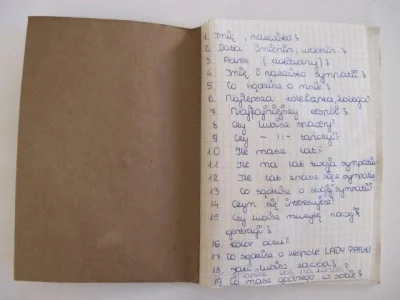 1. Imię, nazwisko?
2. Data imienin, urodzin?
3. Adres (aktualny)?
4. Imię i nazwisko sympatii?
5. Co sądzisz o mnie?
6. Najlepsza koleżanka, kolega?
7. Najfajniejszy zespół?
8. Czy lubisz śpiewać?
9. Czy - 11 - tańczyć?
10 Ile masz lat?
11 Ile ma lat twoja sympatia
12 Ile lat znasz się z sympatią
13 Co sądzisz o swojej sympatii?
14 Czym się interesujesz?
15 Czy lubisz muzykę naszej
generacji?
16. Kolor oczu?
17. Co sądzisz o zespole LADY PANK?
18. Jaki
19 Co masz ładnego w sobie?